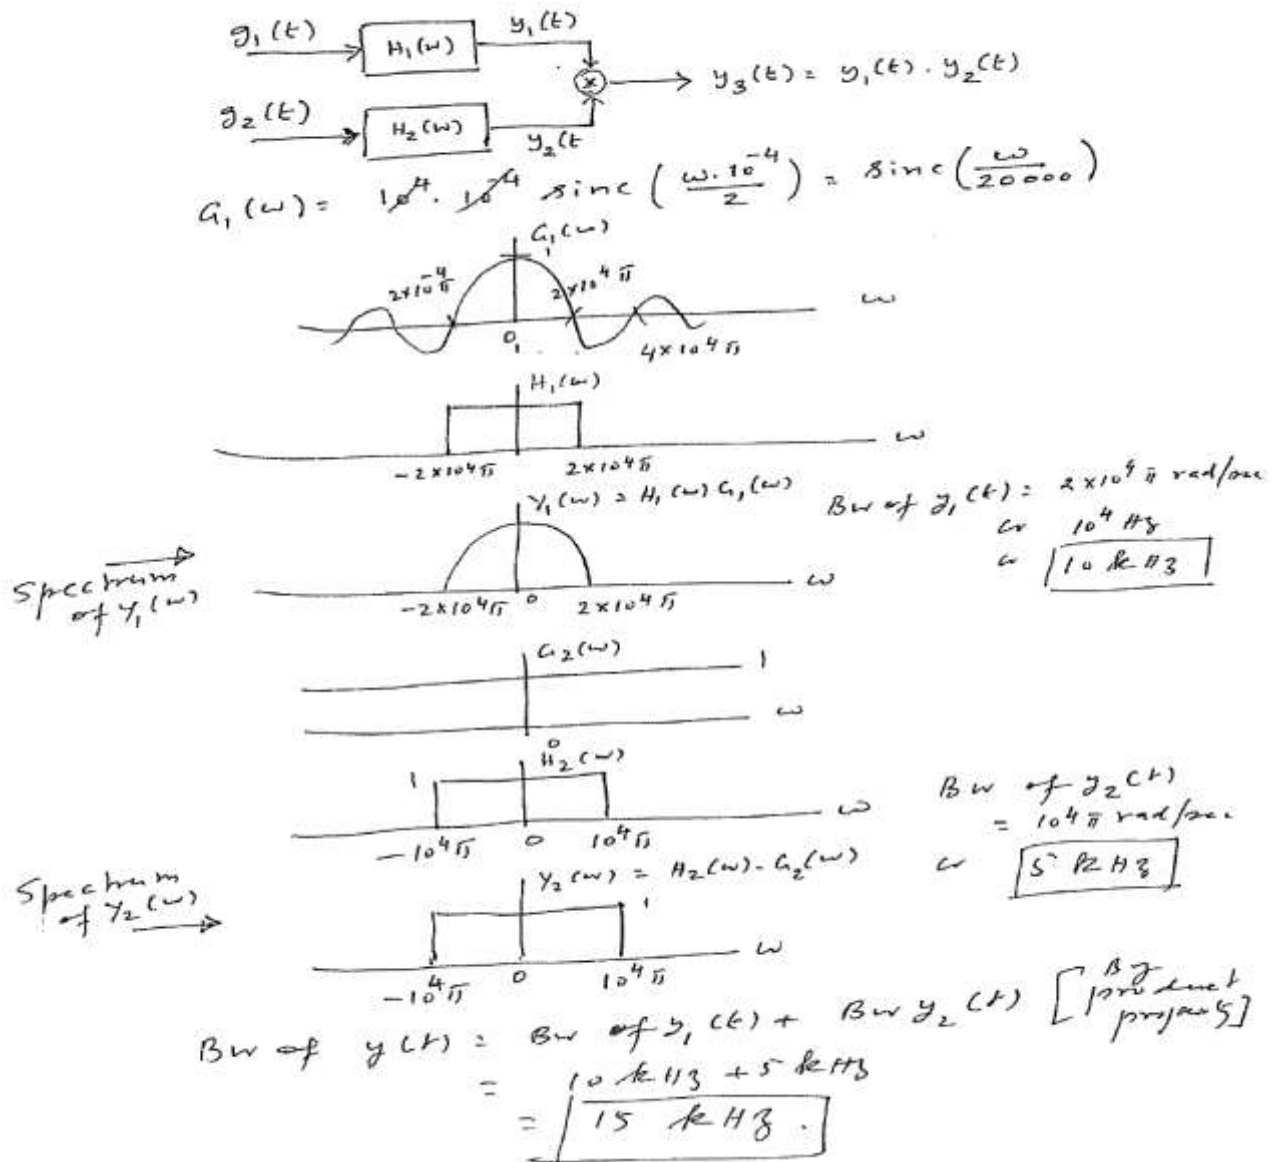 g₁(t) H₁(w) y₁(t)
× y₃(t) = y₁(t) . y₂(t)
g₂(t) H₂(w) y₂(t
G₁(w) = 10⁴. 10⁻⁴ sinc (w.10⁻⁴/2) = sinc (w/20000)
G₁(w)
1
2×10⁻⁴π 2×10⁴π w
0 4×10⁴π
H₁(w)
w
-2×10⁴π 2×10⁴π
Y₁(w) = H₁(w) G₁(w) Bw of y₁(t) = 2×10⁴ π rad/sec
or 10⁴ Hz
or 10 kHz
Spectrum
of Y₁(w)
w
-2×10⁴π 0 2×10⁴π
G₂(w)
1
w
0
H₂(w)
1
w
-10⁴π 0 10⁴π
Bw of y₂(t)
= 10⁴π rad/sec
or 5 kHz
Spectrum
of Y₂(w)
Y₂(w) = H₂(w). G₂(w)
1
w
-10⁴π 0 10⁴π
Bw of y(t) = Bw of y₁(t) + Bw y₂(t) [By
product
property]
= 10 kHz + 5 kHz
= 15 kHz .